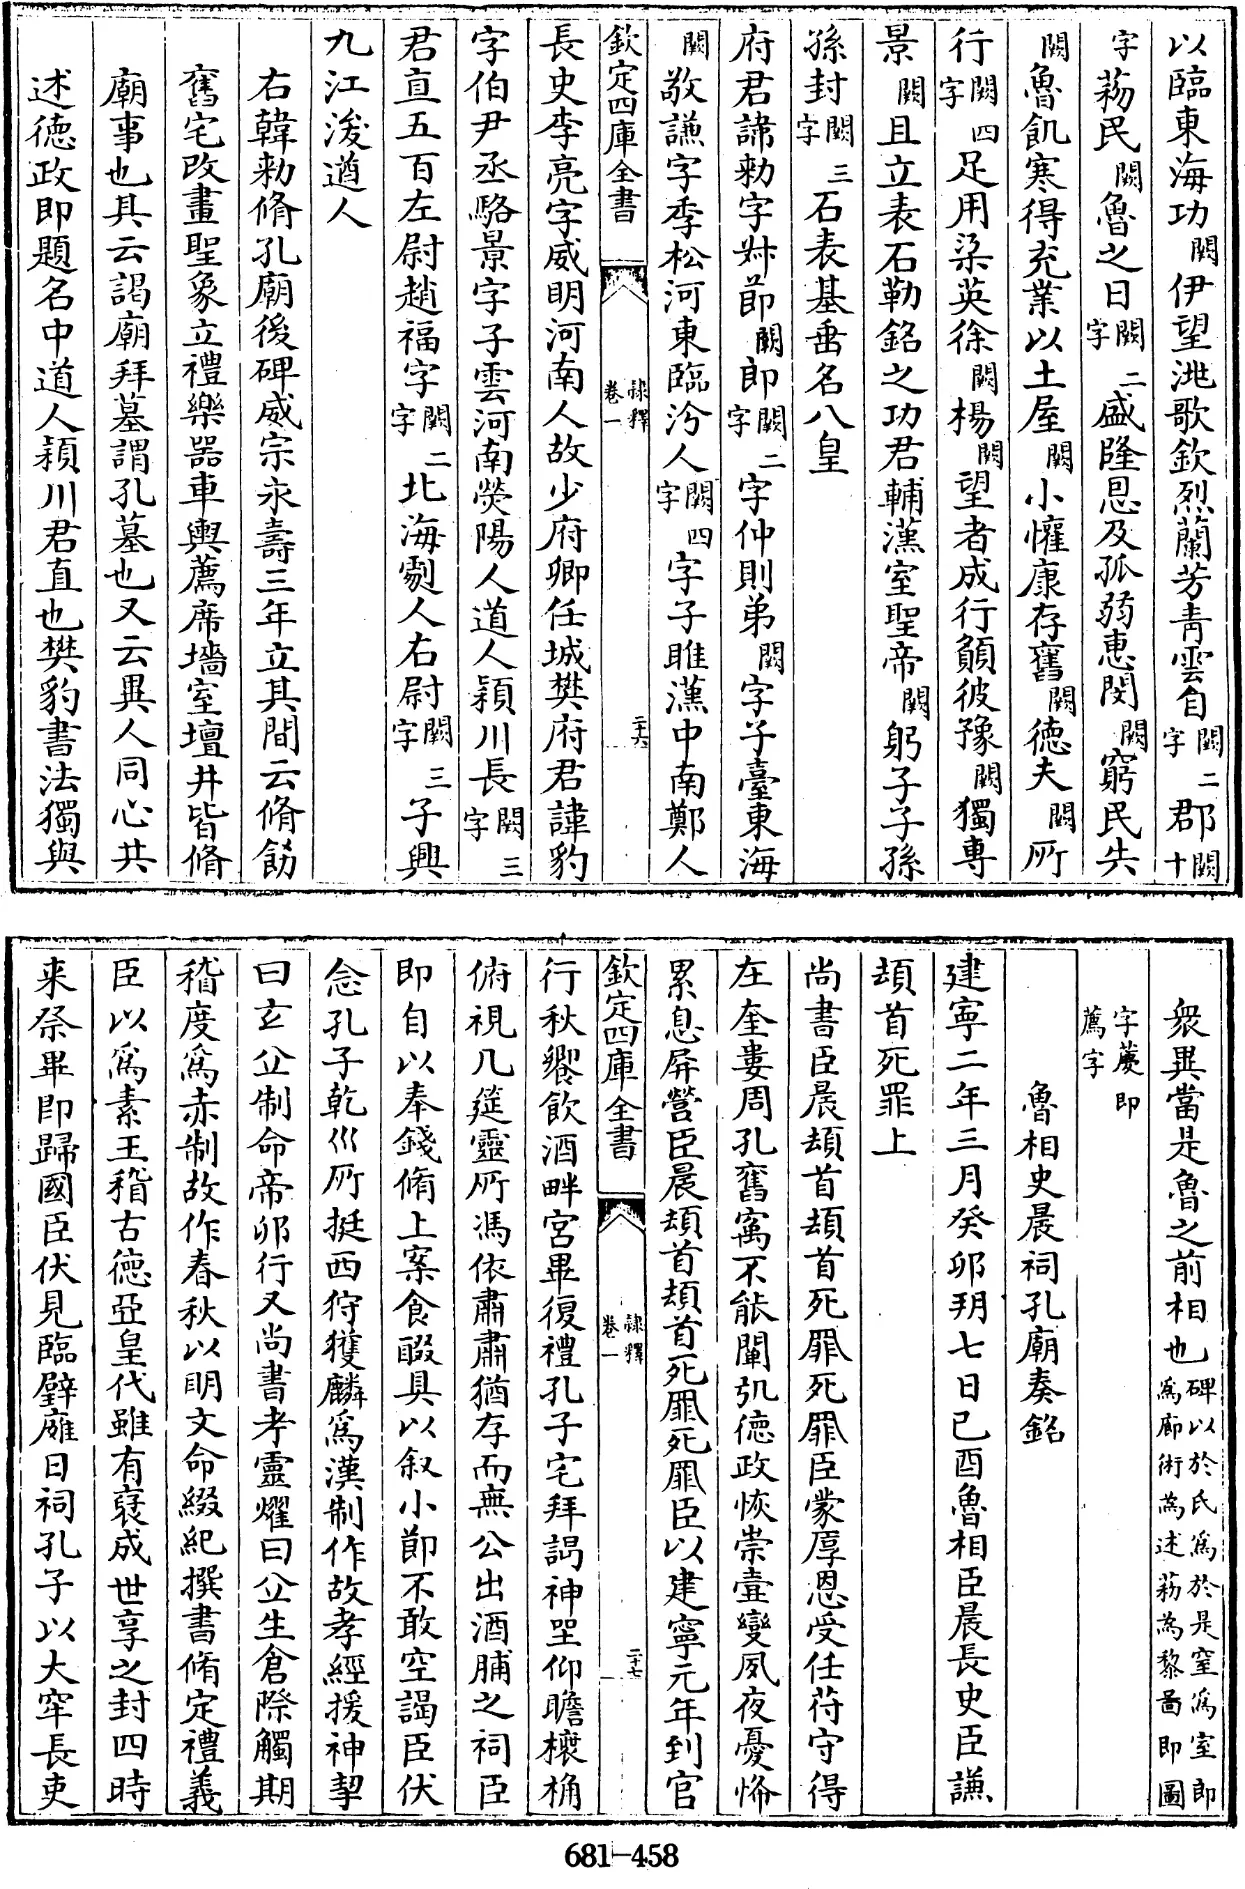 以臨東海功闕伊望沘歌欽烈蘭芳青雲自闕二字郡闕十
字菞民闕魯之日闕二字盛隆恩及孤弱惠閔闕窮民失
闕魯飢寒得充業以土屋闕小懽康存舊闕徳夫闕所
行闕四字足用梁英徐闕楊闕望者成行顗彼豫闕獨專
景闕且立表石勒銘之功君輔漢室聖帝闕躬子子孫
孫封闕三字石表基垂名八皇
府君諱勑字叔節闕郎闕二字字仲則弟闕字子臺東海
闕敬謙字季松河東臨汾人闕四字字子雎漢中南鄭人
欽定四庫全書 隸釋卷一 二十六
長史李亮字威明河南人故少府卿任城樊府君諱豹
字伯尹丞駱景字子雲河南熒陽人道人穎川長闕三字
君直五百左尉趙福字闕二字北海劇人右尉闕三字子興
九江浚遒人
右韓勑脩孔廟後碑威宗永壽三年立其間云脩飭
舊宅改畫聖象立禮樂器車輿薦席墻室壇井皆脩
廟事也其云謁廟拜墓謂孔墓也又云異人同心共
述德政即題名中道人穎川君直也樊豹書法獨與
衆異當是魯之前相也碑以於氏爲於是窒爲室即爲廊術爲述菞為黎啚即圖
字藆即薦字
魯相史晨祠孔廟奏銘
建寧二年三月癸卯朔七日己酉魯相臣晨長史臣謙
頓首死罪上
尚書臣晨頓首頓首死罪死罪臣蒙厚恩受任符守得
在奎婁周孔舊寓不能闡弘德政恢崇壹變夙夜憂怖
累息屏營臣晨頓首頓首死罪死罪臣以建寧元年到官
欽定四庫全書 隸釋卷一 二十七
行秋饗飲酒畔宮畢復禮孔子宅拜謁神坐仰瞻榱桷
俯視几筵靈所馮依肅肅猶存而無公出酒脯之祠臣
即自以奉錢脩上案食醊具以叙小節不敢空謁臣伏
念孔子乾巛所挺西狩獲麟爲漢制作故孝經援神挈
曰玄丘制命帝卯行又尚書考靈燿曰丘生倉際觸期
稽度爲赤制故作春秋以明文命綴紀撰書脩定禮義
臣以爲素王稽古德亞皇代雖有褒成世享之封四時
来祭畢即歸國臣伏見臨璧廱日祠孔子以大牢長吏
681-458